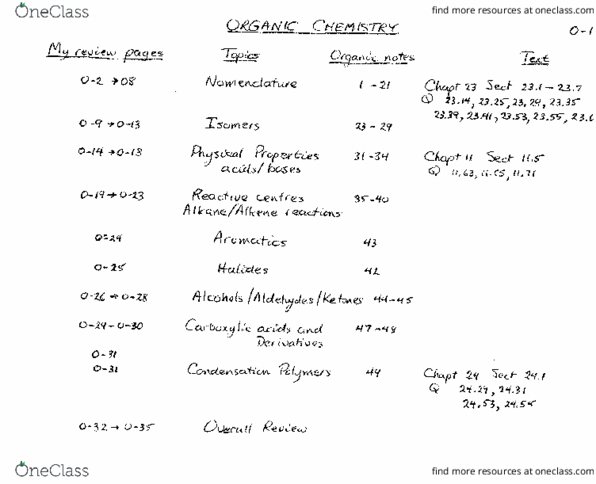 OneClass
find more resources at oneclass.com
ORGANIC CHEMISTRY
0-1
My review pages Topics Organic notes Text
0-2 → 08 Nomenclature 1 - 21 Chapt 23 Sect 23.1 - 23.7
Q 23.14, 23.25, 23.29, 23.35
23.39, 23.41, 23.53, 23.55, 23.6
0-9 → 0-13 Isomers 23 - 29
0-14 → 0-18 Physical Properties 31-34 Chapt 11 Sect 11.5
acids/bases Q 11.63, 11.65, 11.71
0-19 → 0-23 Reactive centres 35-40
Alkane/Alkene reactions
0-24 Aromatics 43
0-25 Halides 42
0-26 → 0-28 Alcohols/Aldehydes/Ketones 44-45
0-29 - 0-30 Carboxylic acids and 47-48
Derivatives
0-31
0-31 Condensation Polymers 49 Chapt 24 Sect 24.1
Q 24.29, 24.31
24.53, 24.55
0-32 → 0-35 Overall Review
OneClass
find more resources at oneclass.com